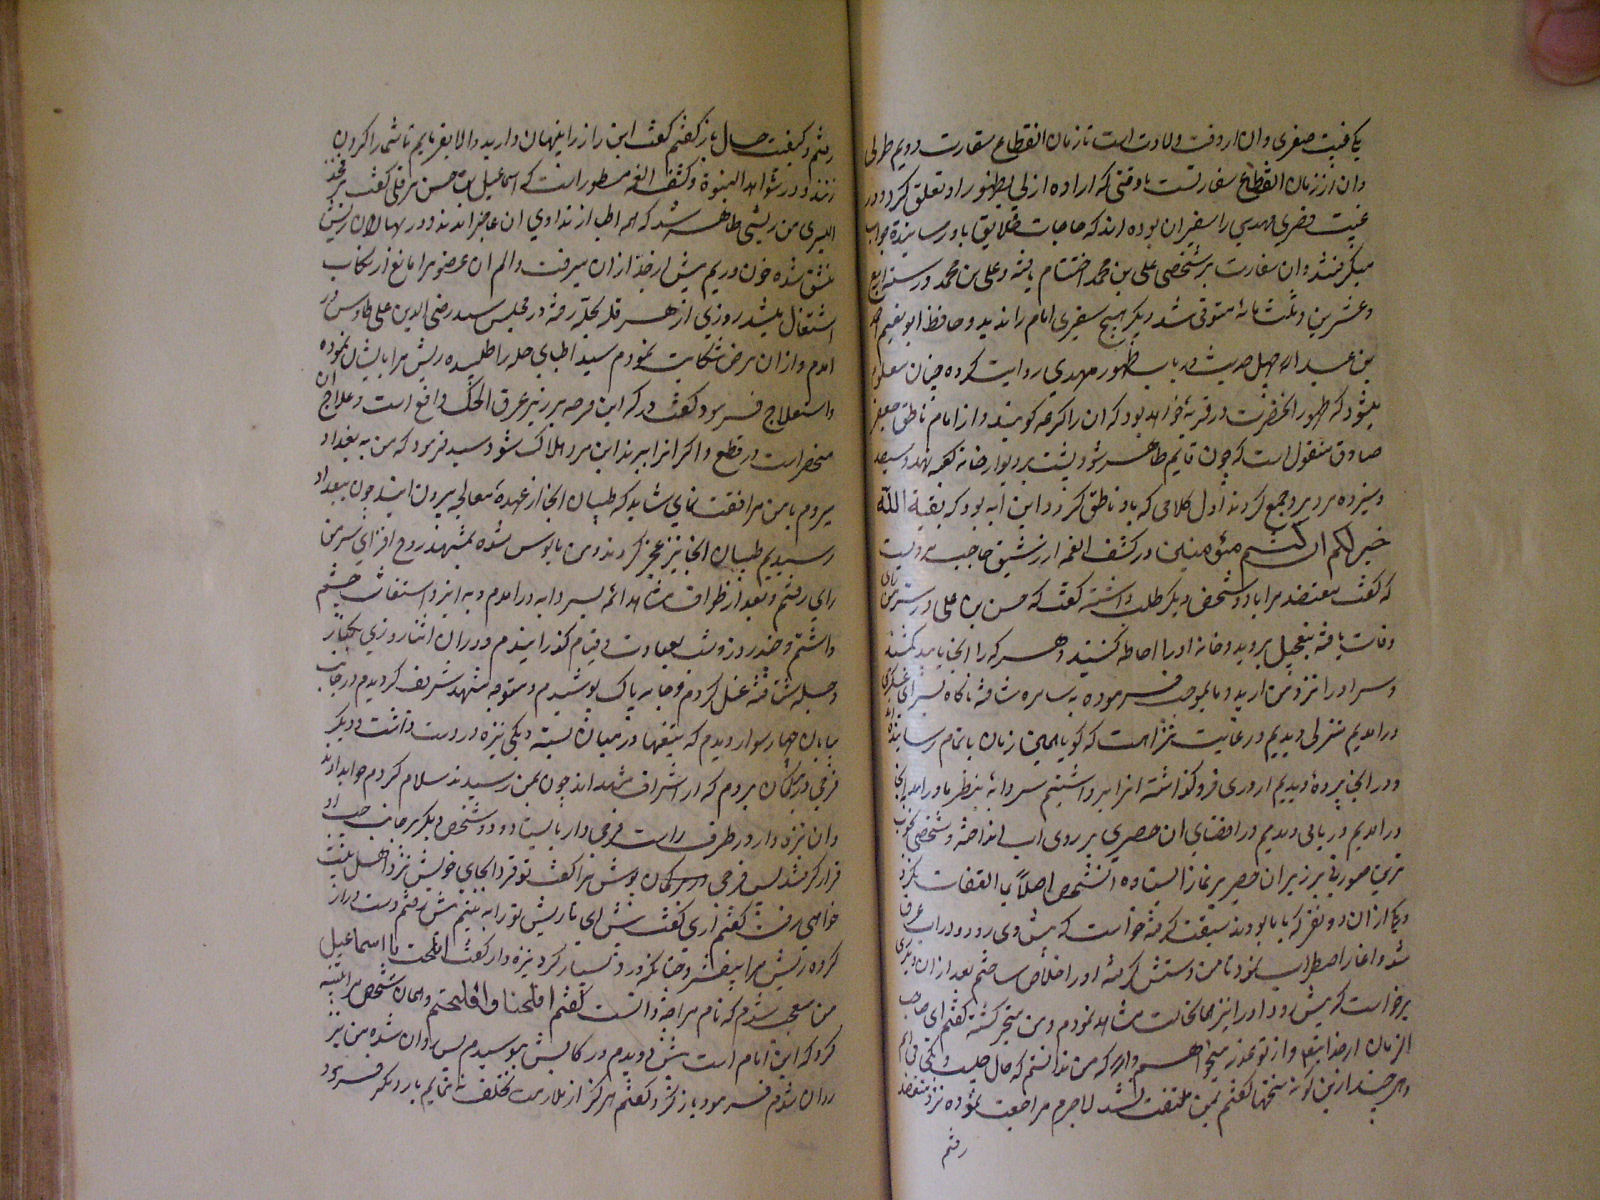 یکی غیبت صغری و ان از وقت ولادت است تا زمان انقطاع سفارت دویم طولی
و ان از زمان انقطاع سفارتست تا وقتی که اراده ازلی بظهور او تعلق گیرد و در
غیبت قصری مهدی را سفیران بوده اند که حاجات خلایق باو رسانیده جواب
میکرفتند و ان سفارت بر شخصی علی بن محمد اختتام یافته و علی بن محمد در سنه
و عشرین و ثلث مائه متوفی شد دیکر هیچ سفیری امام را ندید و حافظ ابو نعیم
بن عبد الله چهل حدیث در باب ظهور مهدی روایت کرده چنان معلوم
میشود که ظهور انحضرت در قریهٔ خواهد بود که ان را کرعه کویند و از امام ناطق جعفر
صادق منقول است که چون قایم ظاهر شود پشت بر دیوار خانه کعبه نهد و سیصد
و سیزده مرد برو جمع کردند اول کلامی که باو ناطق کردد این ایه بود که بقیة الله
خیر لکم ان کنتم مؤمنین و در کشف الغمه از رشیق حاجب مرویست
که گفت معتضد مرا با دو شخص دیکر طلب داشته گفت که حسن بن علی در سرمن رای
وفات یافته بتعجیل بروید و خانه او را احاطه کنید و هر که را انجا یابید بکشید
و سر او را نزد من ارید و ما بموجب فرموده به سامره شتافته ناکاه بسرای عسکری
درامدیم منزلی دیدیم در غایت نزاهت که کویا همین زمان باتمام رسانیده اند
و در انجا پرده دیدیم از دری فرو کذاشته انرا برداشتیم سردابه بنظر ما درامد بانجا
درامدیم دریایی دیدیم در اقصای ان حصیری بر روی اب انداخته و شخصی بخوب
ترین صورتی بر زبر ان حصیر بنماز ایستاده انشخص اصلاً بما التفات نکرد
و یکی از ان دو نفر که با ما بودند سبقت کرفته خواست که پیش وی رود در اب غرق
شد و اغاز اضطراب نمود تا من دستش کرفته او را خلاص ساختم بعد از ان دیکری
برخاست که پیش رود او را نیز همان حالت مشاهد نمودم و من متحیر کشته گفتم ای صاحب
الزمان از خدایتعالی و از تو عذر میخواهم والله که من ندانستم که حال چیست و بکجا می ایم
و هر چند ازین کونه سخنها گفتم بمن ملتفت نشد لاجرم مراجعت نموده نزد معتضد
رفتم
رفتم و کیفیت حال باز گفتم گفت این راز را پنهان دارید والا بفرمایم تا شما را کردن
زنند و در شواهد النبوة و کشف الغمه مسطور است که اسماعیل بن حسن هرقلی گفت بر فخذ
الیسری من ریشی ظاهر شد که همه اطبا از تداوی ان عاجز امدند و در بهاران ریش
منشق شده خون و ریم بیش از حد از ان میرفت و الم ان عضو مرا مانع ارتکاب
اشتغال میشد روزی از هرقله بحله رفته در مجلس سید رضی الدین علی طاوس در
امدم و از ان مرض شکایت نمودم سید اطبای حله را طلبیده ریش مرا بایشان نموده
و استعلاج فرمود گفتند که این قرحه بر زبر عرق اکحل واقع است و علاج ان
منحصر است در قطع و اکر انرا ببرند این مرد هلاک شود سید فرمود که من به بغداد
میروم با من مرافقت نمای شاید که طبیبان انجا از عهدهٔ معالجه بیرون ایند چون ببغداد
رسیدیم طبیبان انجا نیز عجز کردند و من مایوس شده بمشهد روح افزای سرمن
رای رفتم و بعد از طواف مشاهد ائمه بسردابه درامدم و به ایزد استغاثت جسم
داشتم و چند روز و شب بعبادت و قیام کذرانیدم در ان اثنا روزی بکنار
دجله شتافته غسل کردم و جامه پاک پوشیدم و متوجه مشهد شریف کردیدم در جانب
بیابان چهار سوار دیدم که تیغها در میان بسته و یکی نیزه در دست داشت و دیکر
فرجی در برکمان بردم که از اشراف مشهد اند چون بمن رسیدند سلام کردم جواب دادند
و ان نیزه دار در طرف راست فرجی دار بایستاد و دو شخص دیکر بر جانب چپ او
قرار کرفتند پس فرجی پوش مرا گفت تو فردا بجای خویش نزد اهل بیت
خواهی رفت گفتم اری گفت پیش ای تا ریش تو را به بینم پیش رفتم دست دراز
کرده ریش مرا بیفشرد چنانکه درد بسیار کرد نیزه دار گفت افلحت یا اسماعیل
من متعجب شدم که نام مرا چه دانست گفتم افلحنا و افلحتم و همان شخص مرا تنبیه
کرد که این امام است پیش دویدم و رکابش ببوسیدم پس روان شده من نیز
روان شدم فرمود باز کرد گفتم هرکز از ملازمت تخلف ننمایم بار دیکر فرمود